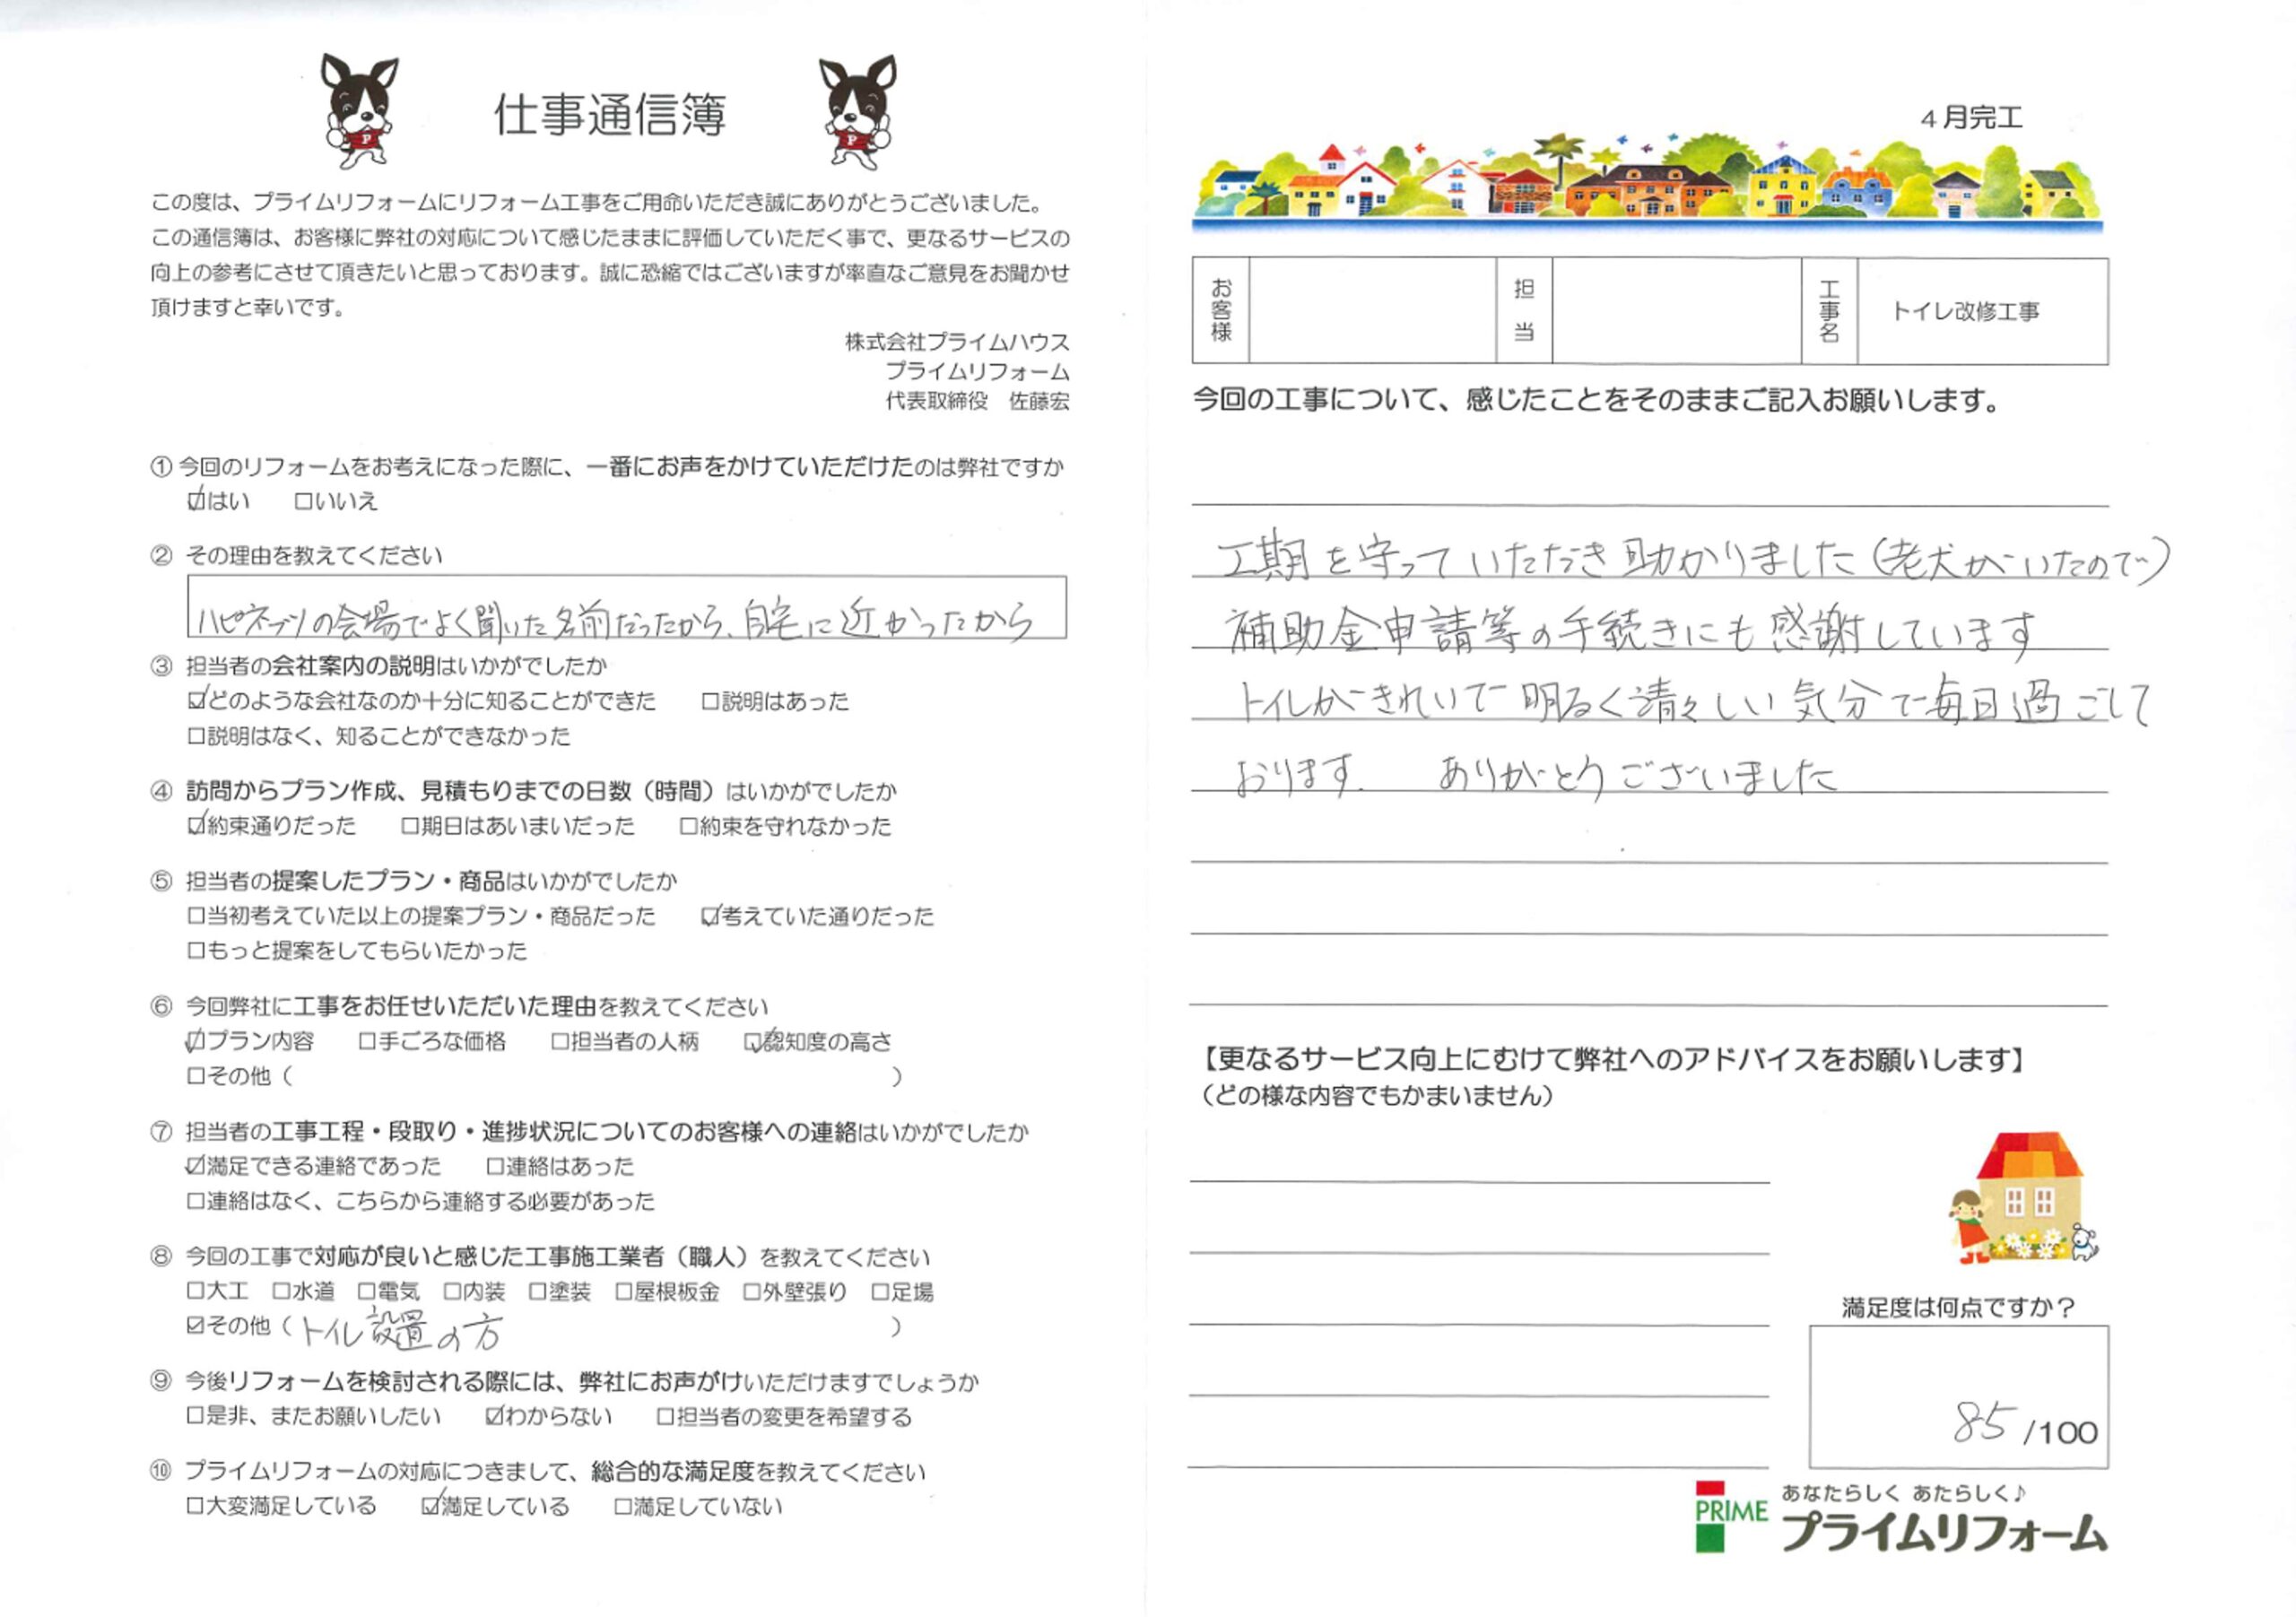 仕事通信簿
この度は、プライムリフォームにリフォーム工事をご用命いただき誠にありがとうございました。
この通信簿は、お客様に弊社の対応について感じたままに評価していただく事で、更なるサービスの
向上の参考にさせて頂きたいと思っております。誠に恐縮ではございますが率直なご意見をお聞かせ
頂けますと幸いです。
株式会社プライムハウス
プライムリフォーム
代表取締役　佐藤宏
① 今回のリフォームをお考えになった際に、一番にお声をかけていただけたのは弊社ですか
☑はい　□いいえ
② その理由を教えてください
ハピネッツの会場でよく聞いた名前だったから、自宅に近かったから
③ 担当者の会社案内の説明はいかがでしたか
☑どのような会社なのか十分に知ることができた　□説明はあった
□説明はなく、知ることができなかった
④ 訪問からプラン作成、見積もりまでの日数（時間）はいかがでしたか
☑約束通りだった　□期日はあいまいだった　□約束を守れなかった
⑤ 担当者の提案したプラン・商品はいかがでしたか
□当初考えていた以上の提案プラン・商品だった　☑考えていた通りだった
□もっと提案をしてもらいたかった
⑥ 今回弊社に工事をお任せいただいた理由を教えてください
☑プラン内容　□手ごろな価格　□担当者の人柄　☑認知度の高さ
□その他（　）
⑦ 担当者の工事工程・段取り・進捗状況についてのお客様への連絡はいかがでしたか
☑満足できる連絡であった　□連絡はあった
□連絡はなく、こちらから連絡する必要があった
⑧ 今回の工事で対応が良いと感じた工事施工業者（職人）を教えてください
□大工　□水道　□電気　□内装　□塗装　□屋根板金　□外壁張り　□足場
☑その他（トイレ設置の方　）
⑨ 今後リフォームを検討される際には、弊社にお声がけいただけますでしょうか
□是非、またお願いしたい　☑わからない　□担当者の変更を希望する
⑩ プライムリフォームの対応につきまして、総合的な満足度を教えてください
□大変満足している　☑満足している　□満足していない
4月完工
お客様　担当　工事名　トイレ改修工事
今回の工事について、感じたことをそのままご記入お願いします。
工期を守っていただき助かりました（老犬がいたので）
補助金申請等の手続きにも感謝しています
トイレがきれいで明るく清々しい気分で毎日過ごして
おります。　ありがとうございました
【更なるサービス向上にむけて弊社へのアドバイスをお願いします】
（どの様な内容でもかまいません）
満足度は何点ですか？
85/100
あなたらしく あたらしく♪
PRIME プライムリフォーム